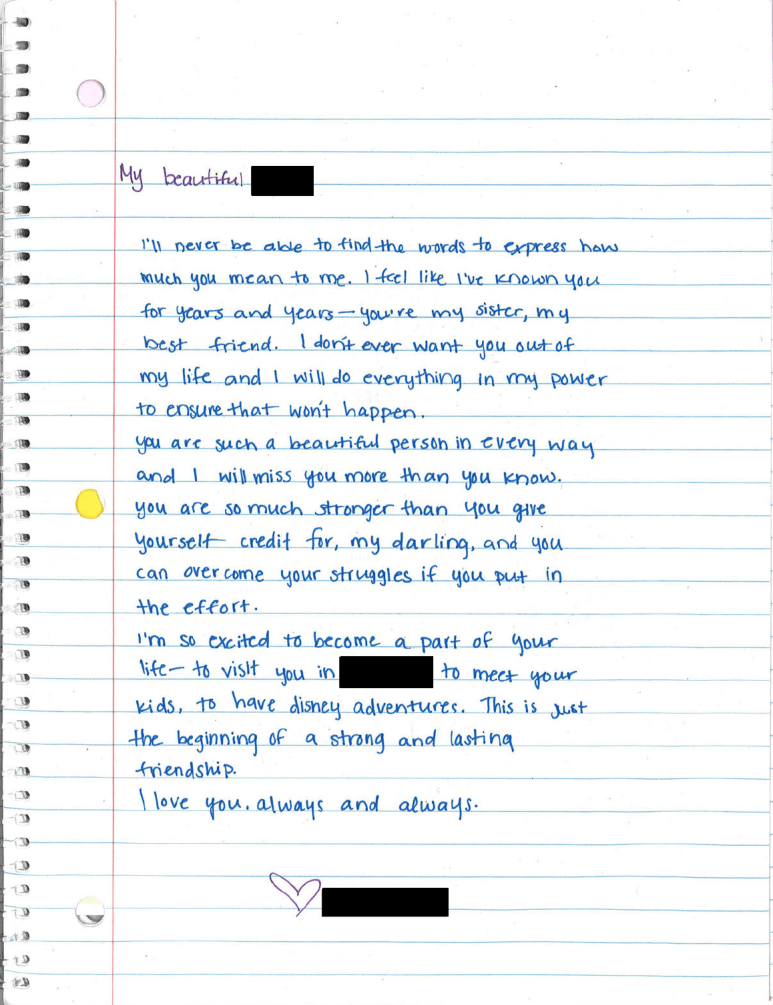 My beautiful
I'll never be able to find the words to express how
much you mean to me. I feel like I've known you
for years and years—you're my sister, my
best friend. I don't ever want you out of
my life and I will do everything in my power
to ensure that won't happen.
you are such a beautiful person in every way
and I will miss you more than you know.
you are so much stronger than you give
yourself credit for, my darling, and you
can overcome your struggles if you put in
the effort.
I'm so excited to become a part of your
life— to visit you in to meet your
kids, to have disney adventures. This is just
the beginning of a strong and lasting
friendship.
I love you. always and always.